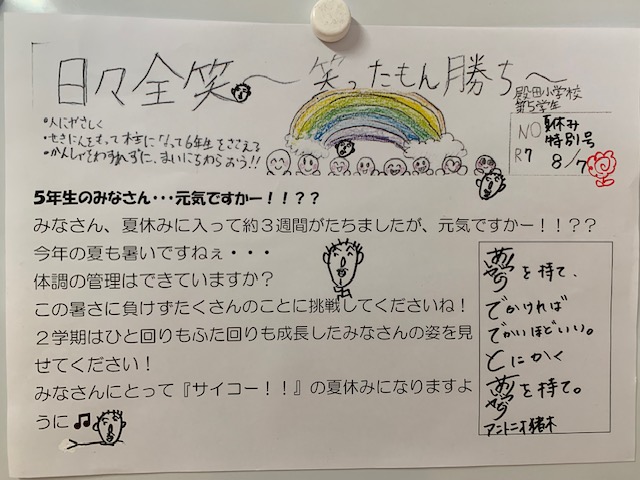 日々全笑〜笑ったもん勝ち〜
殿田小学校
第5学年
・人にやさしく
・せきにんをもって本気になって6年生をささえる
・かんしゃをわすれずに、まいにちわらおう!!
NO 夏休み特別号
R7 8/7
5年生のみなさん・・・元気ですかー!!??
みなさん、夏休みに入って約3週間がたちましたが、元気ですかー!!??
今年の夏も暑いですねぇ・・・
体調の管理はできていますか?
この暑さに負けずたくさんのことに挑戦してくださいね!
2学期はひと回りもふた回りも成長したみなさんの姿を見
せてください!
みなさんにとって『サイコー!!』の夏休みになりますよ
うに♫
を持て、
でかければ
でかいほどいい。
とにかく
を持て。
アントニオ猪木